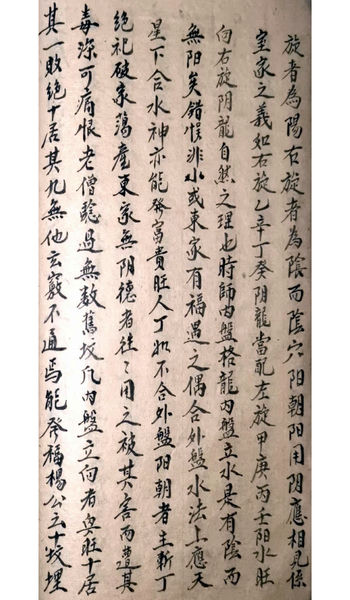 旋者為陽右旋者為陰而陰穴阳朝阳用阴應相見係
室家之義如右旋乙辛丁癸阴龍當配左旋甲庚丙壬阳水旺
向右旋阴龍自然之理也時師内盤格龍内盤立水是有陰而
無阳矣錯悮非小或東家有福遇之偶合外盤水法上應天
星下合水神亦能發富貴旺人丁如不合外盤阳朝者主斬丁
絶祀破家蕩產東家無阴德者往々用之被其害而遭其
毒深可痛恨老僧騐過無数舊坟凡内盤立向者與旺十居
其一敗絶十居其九無他玄竅不通焉能發福楊公云十坟埋